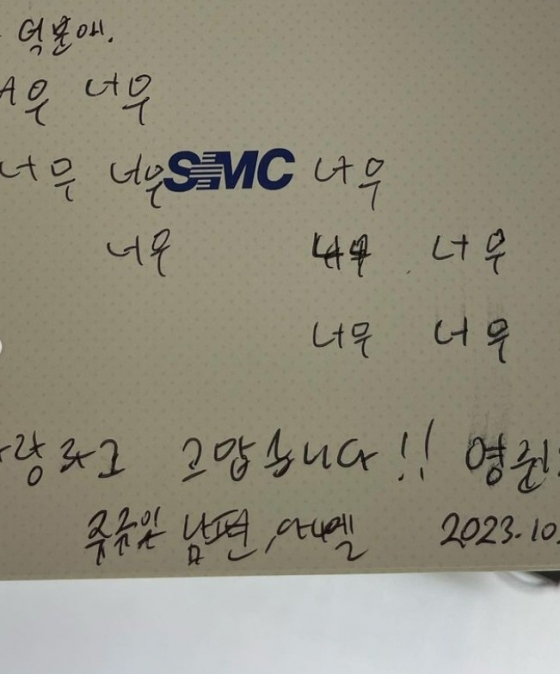 덕분에.
너무 너무
너무 너무 SMC 너무
너무 너무 너무
너무 너무
사랑하고 고맙습니다!! 영원
남편, 아벨 2023.10.